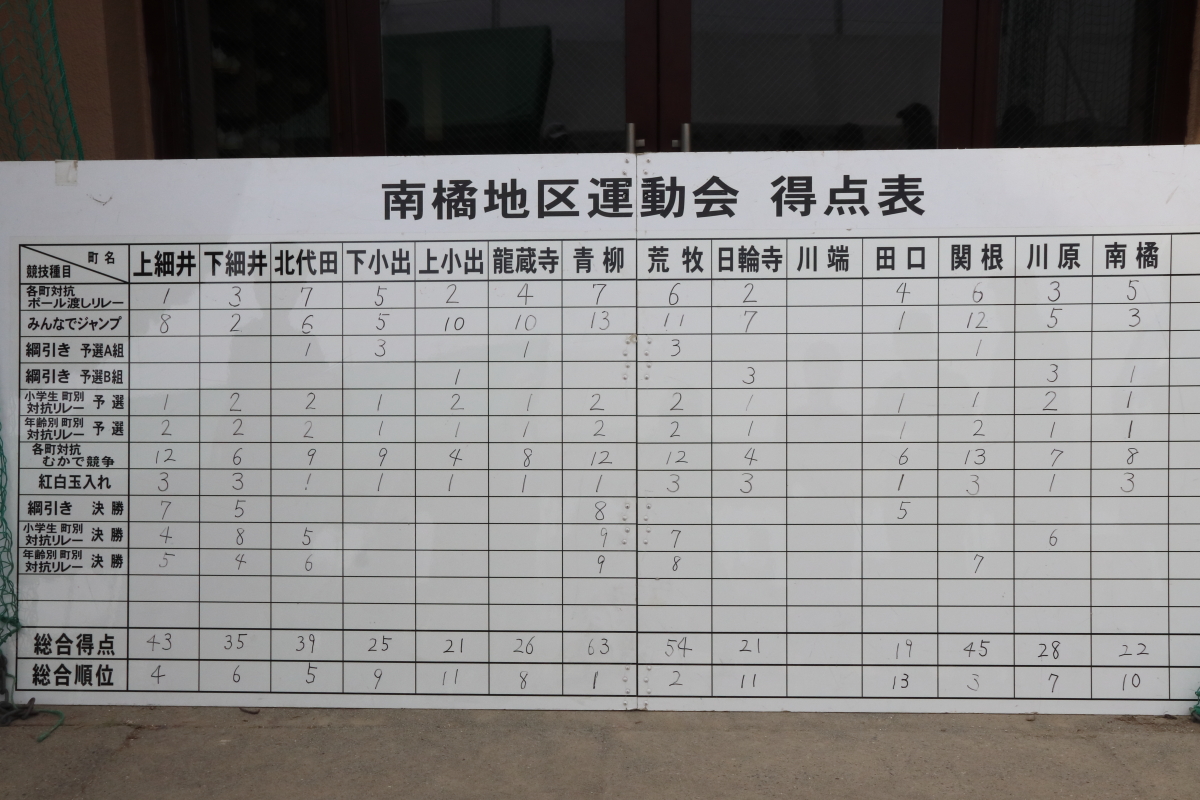 南橘地区運動会 得点表
町名 競技種目 上細井 下細井 北代田 下小出 上小出 龍蔵寺 青柳 荒牧 日輪寺 川端 田口 関根 川原 南橘
各町対抗 ボール渡しリレー 1 3 7 5 2 4 7 6 2 4 6 3 5
みんなでジャンプ 8 2 6 5 10 10 13 11 7 1 12 5 3
綱引き 予選A組 1 3 1 3 1
綱引き 予選B組 1 3 3 1
小学生 町別 対抗リレー 予選 1 2 2 1 2 1 2 2 1 1 1 2 1
年齢別 町別 対抗リレー 予選 2 2 2 1 1 1 2 2 1 1 2 1 1
各町対抗 むかで競争 12 6 9 9 4 8 12 12 4 6 13 7 8
紅白玉入れ 3 3 1 1 1 1 1 3 3 1 3 1 3
綱引き 決勝 7 5 8 5
小学生 町別 対抗リレー 決勝 4 8 5 9 7 6
年齢別 町別 対抗リレー 決勝 5 4 6 9 8 7
総合得点 43 35 39 25 21 26 63 54 21 19 45 28 22
総合順位 4 6 5 9 11 8 1 2 11 13 3 7 10